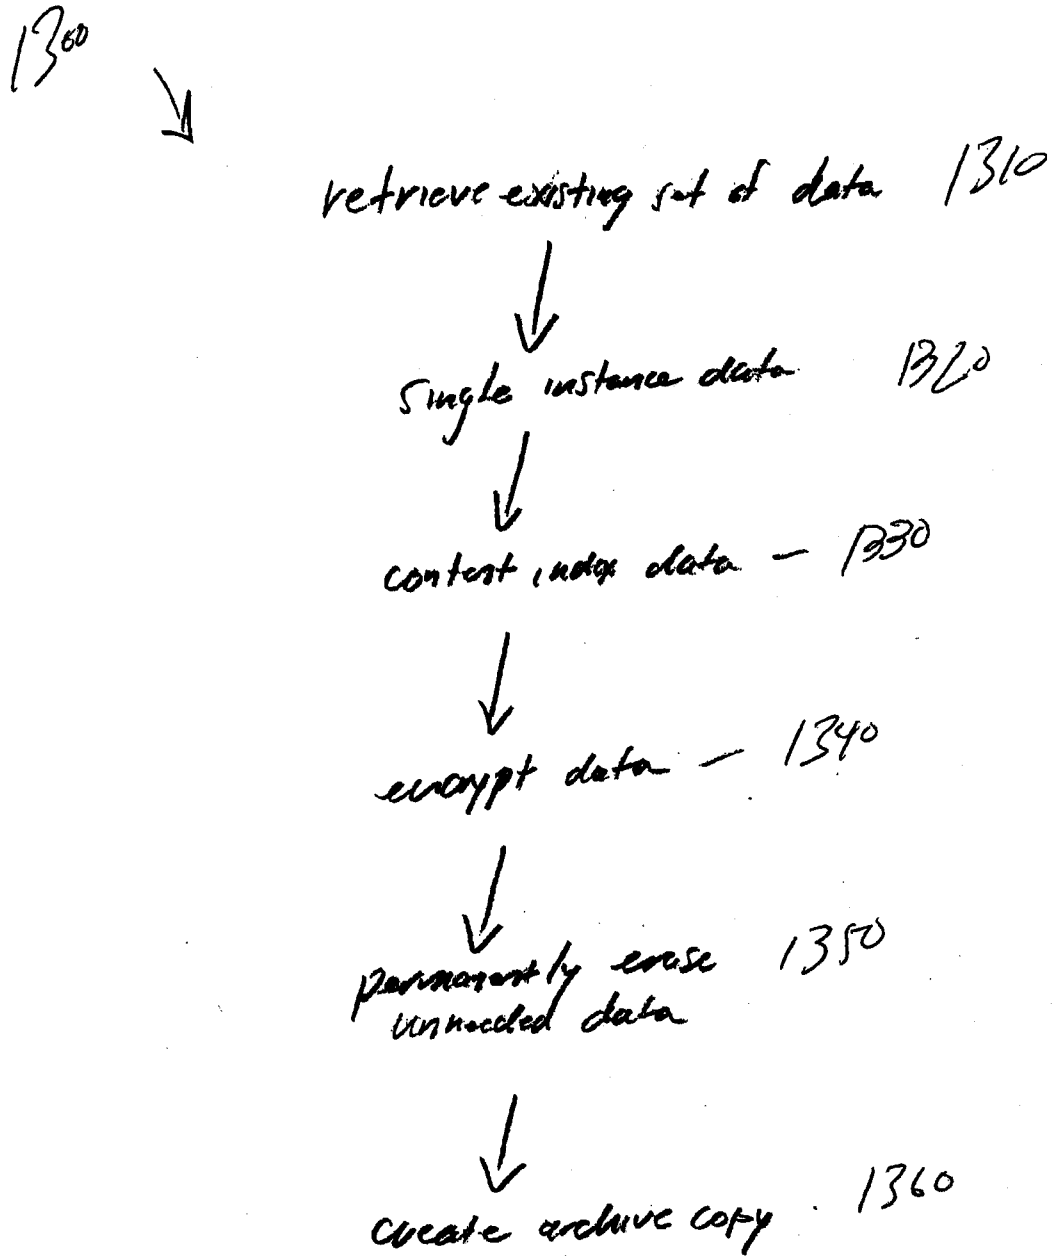 1300
retrieve existing set of data 1310
single instance data 1320
content index data — 1330
encrypt data — 1340
permanently erase 1350
unneeded data
create archive copy 1360